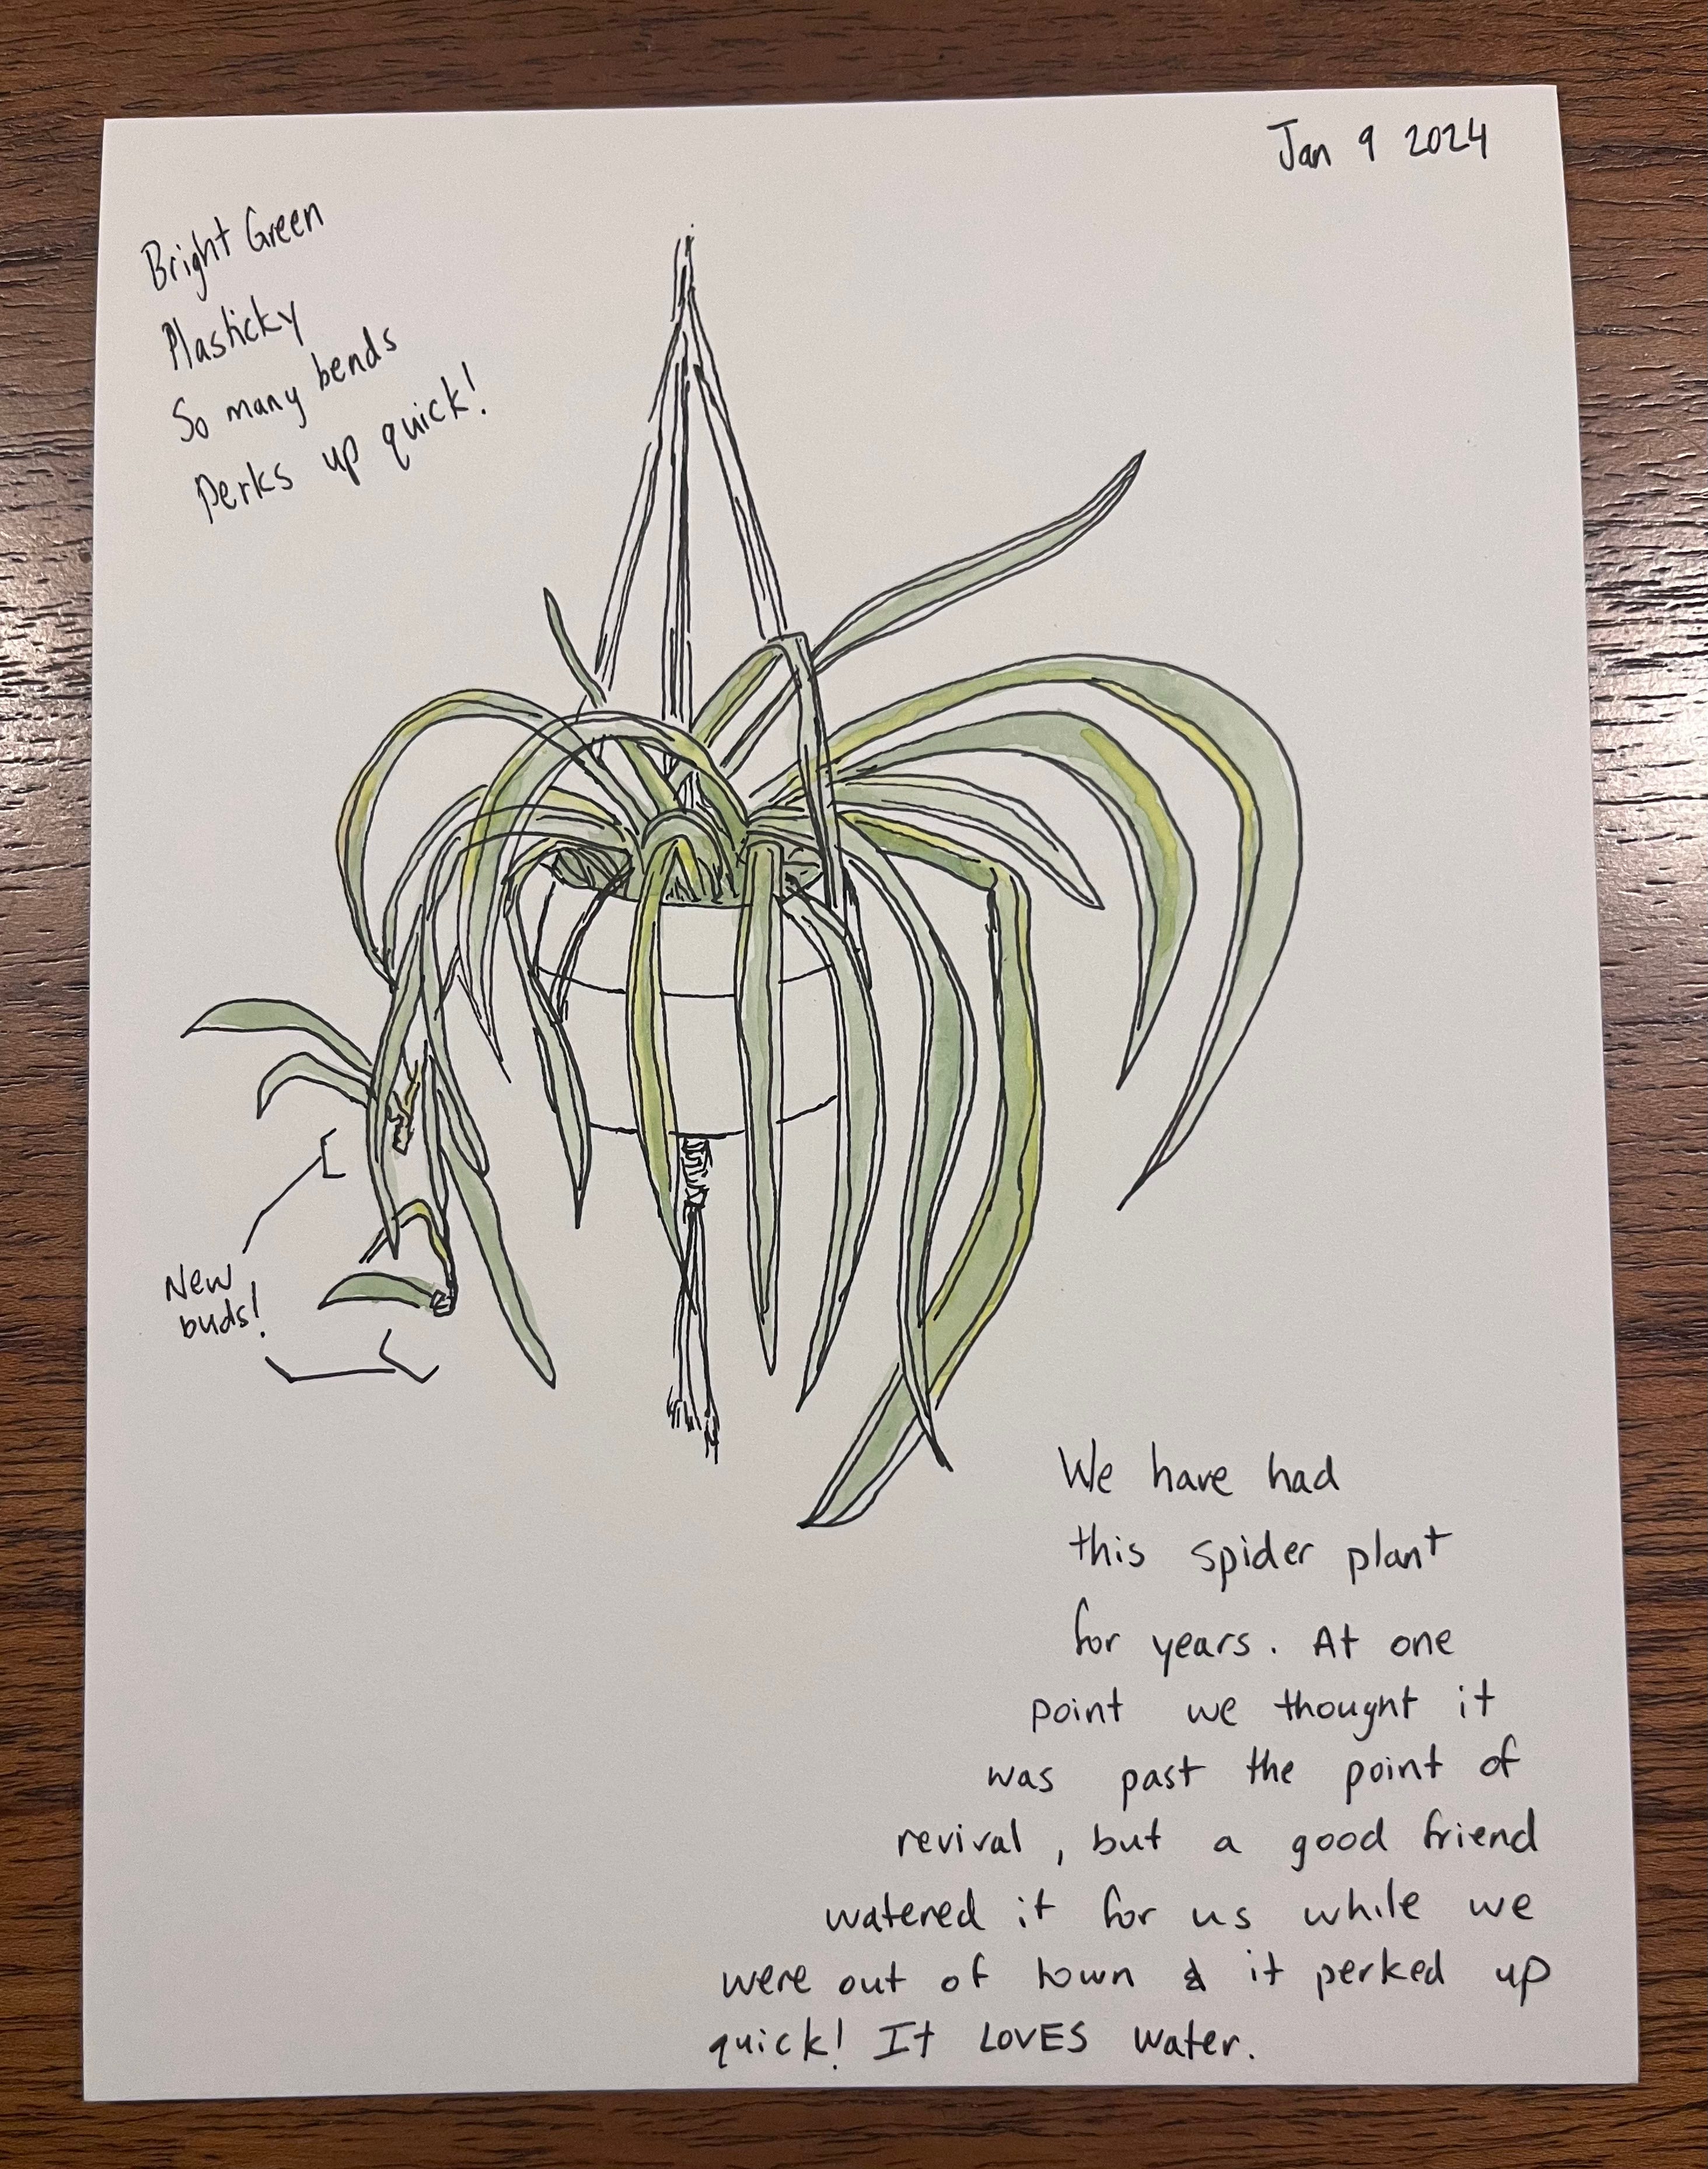 Jan 9 2024
Bright Green
Plasticky
So many bends
Perks up quick!
New
buds!
We have had
this spider plant
for years. At one
point we thought it
was past the point of
revival, but a good friend
watered it for us while we
were out of town & it perked up
quick! It LOVES water.